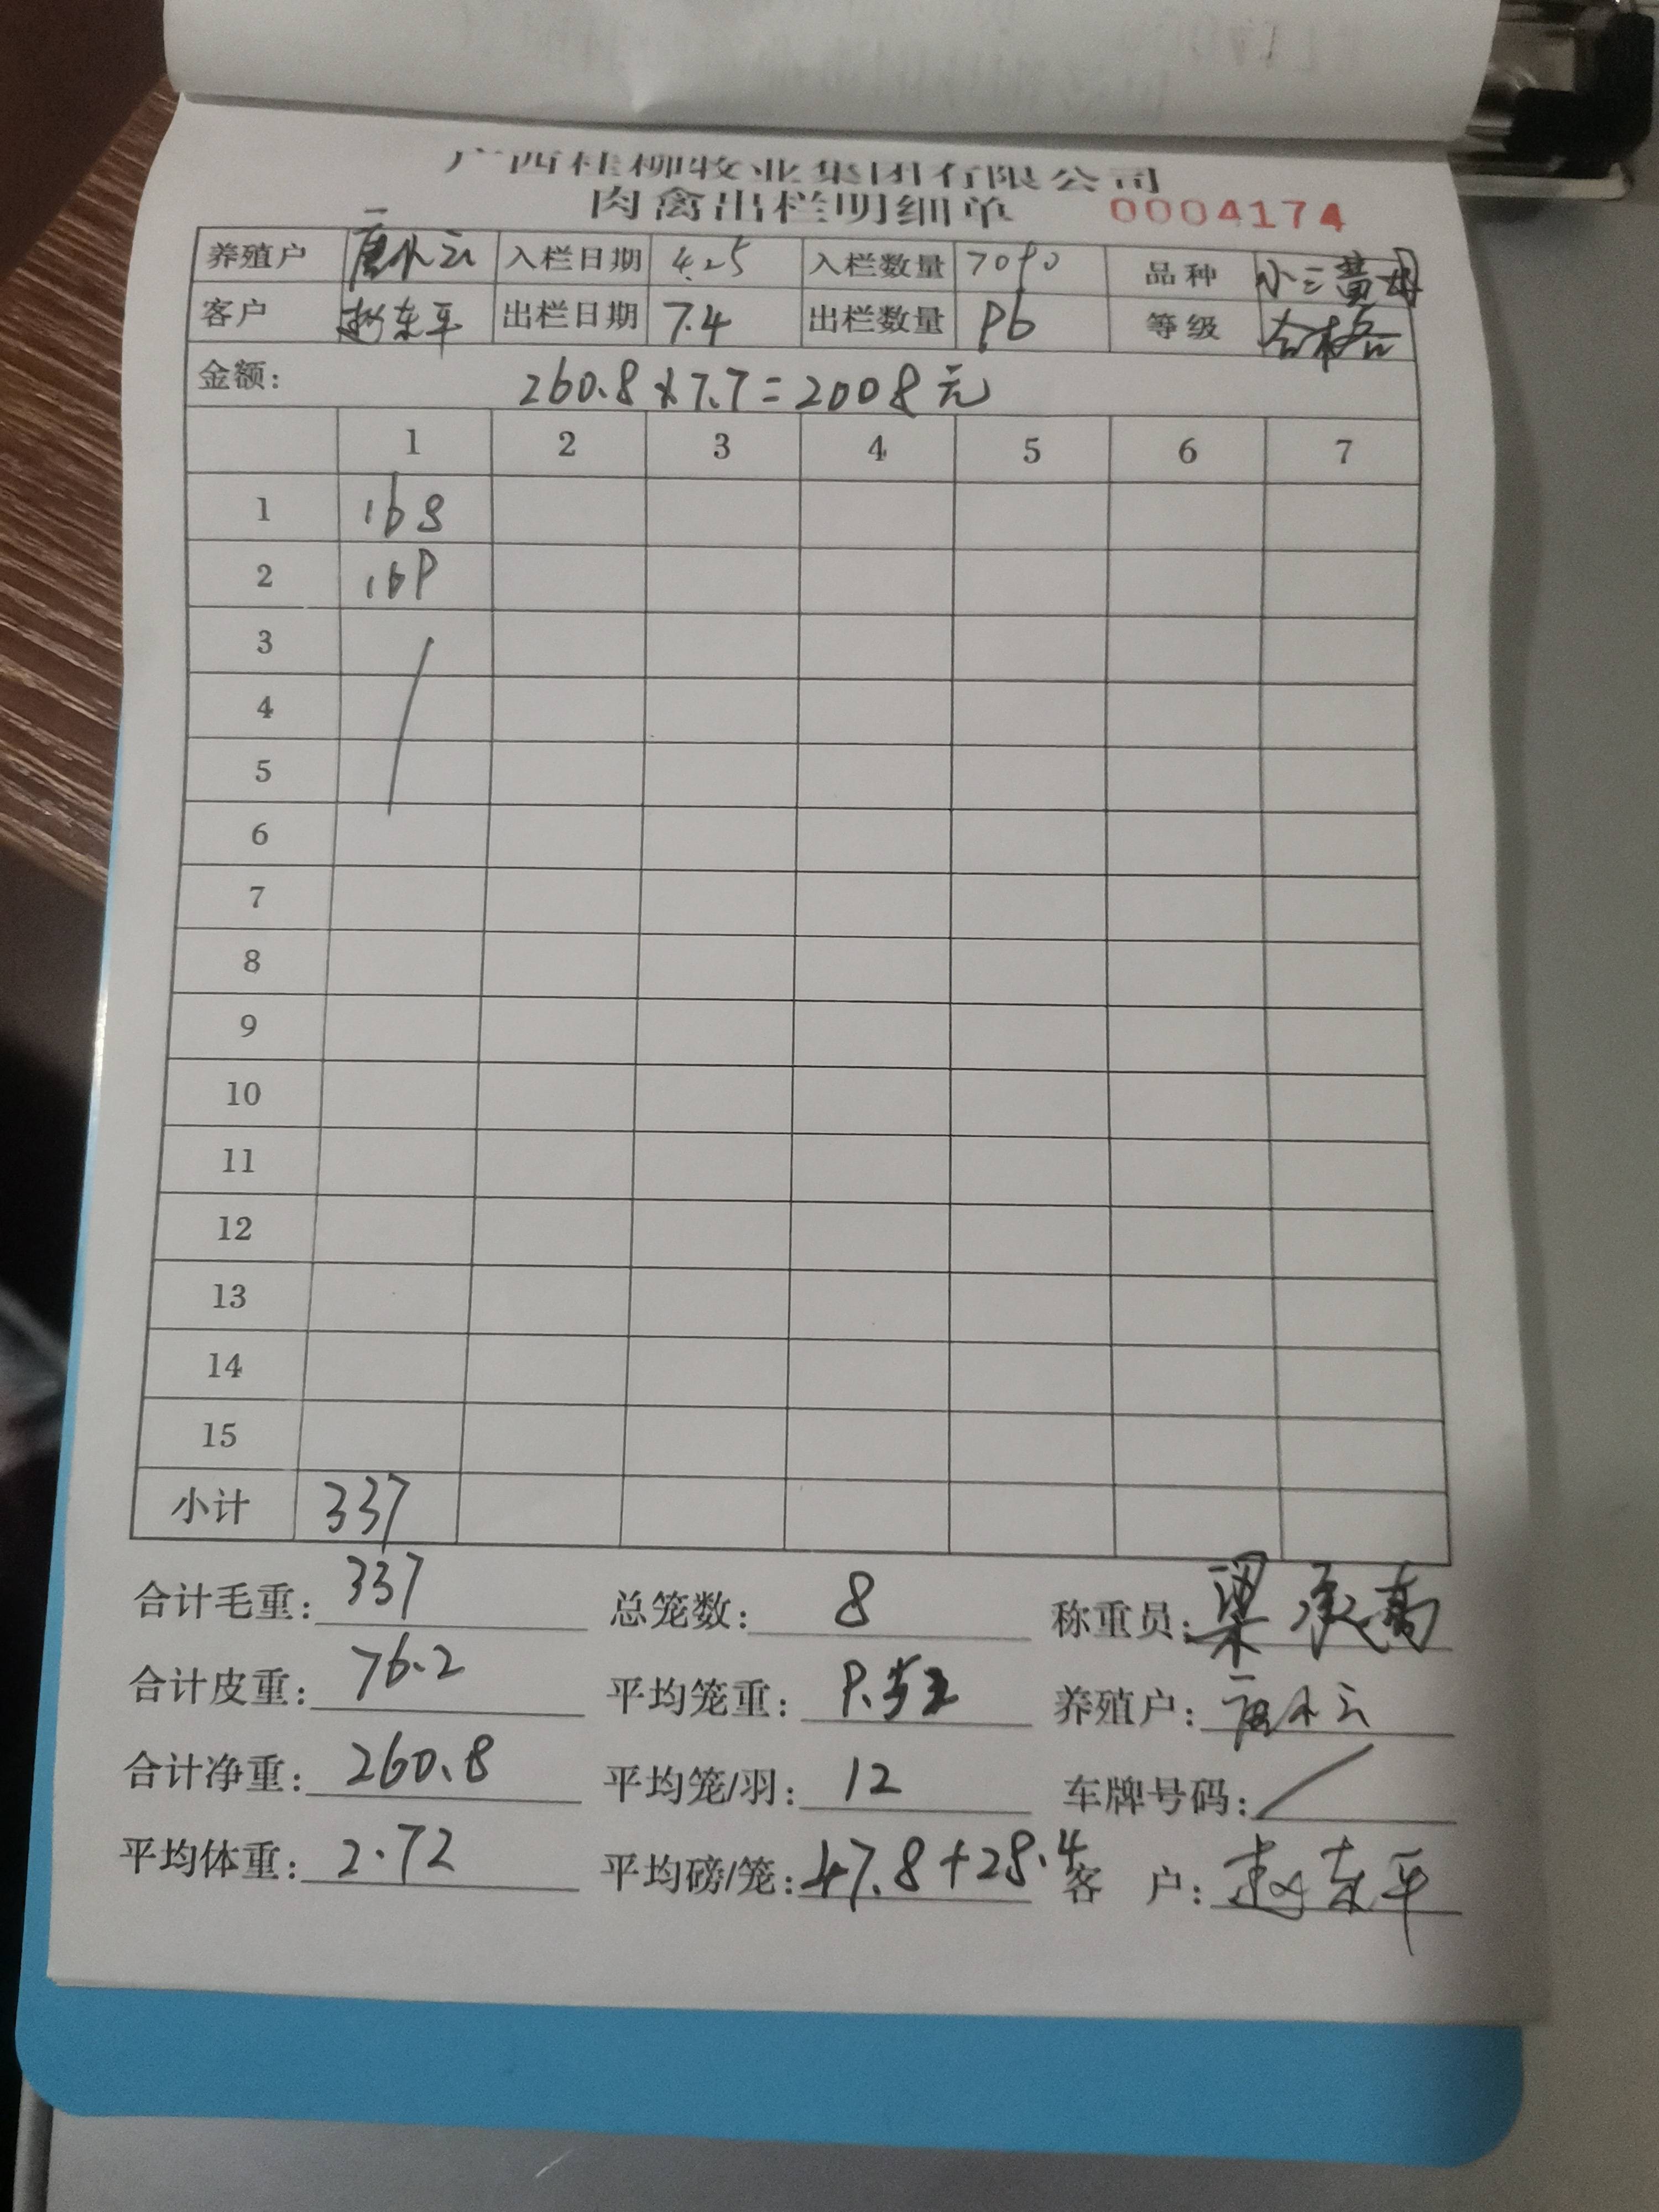 广西桂柳牧业集团有限公司
肉禽出栏明细单 0004174
养殖户 唐小云 入栏日期 4.25 入栏数量 7090 品种 小三黄母
客户 赵东平 出栏日期 7.4 出栏数量 96 等级 合格
金额: 260.8×7.7=2008元
1 2 3 4 5 6 7
1 168
2 169
3
4
5
6
7
8
9
10
11
12
13
14
15
小计 337
合计毛重: 337 总笼数: 8 称重员: 梁承高
合计皮重: 76.2 平均笼重: 9.52 养殖户: 唐小云
合计净重: 260.8 平均笼/羽: 12 车牌号码: /
平均体重: 2.72 平均磅/笼: 47.8+28.4 客户: 赵东平